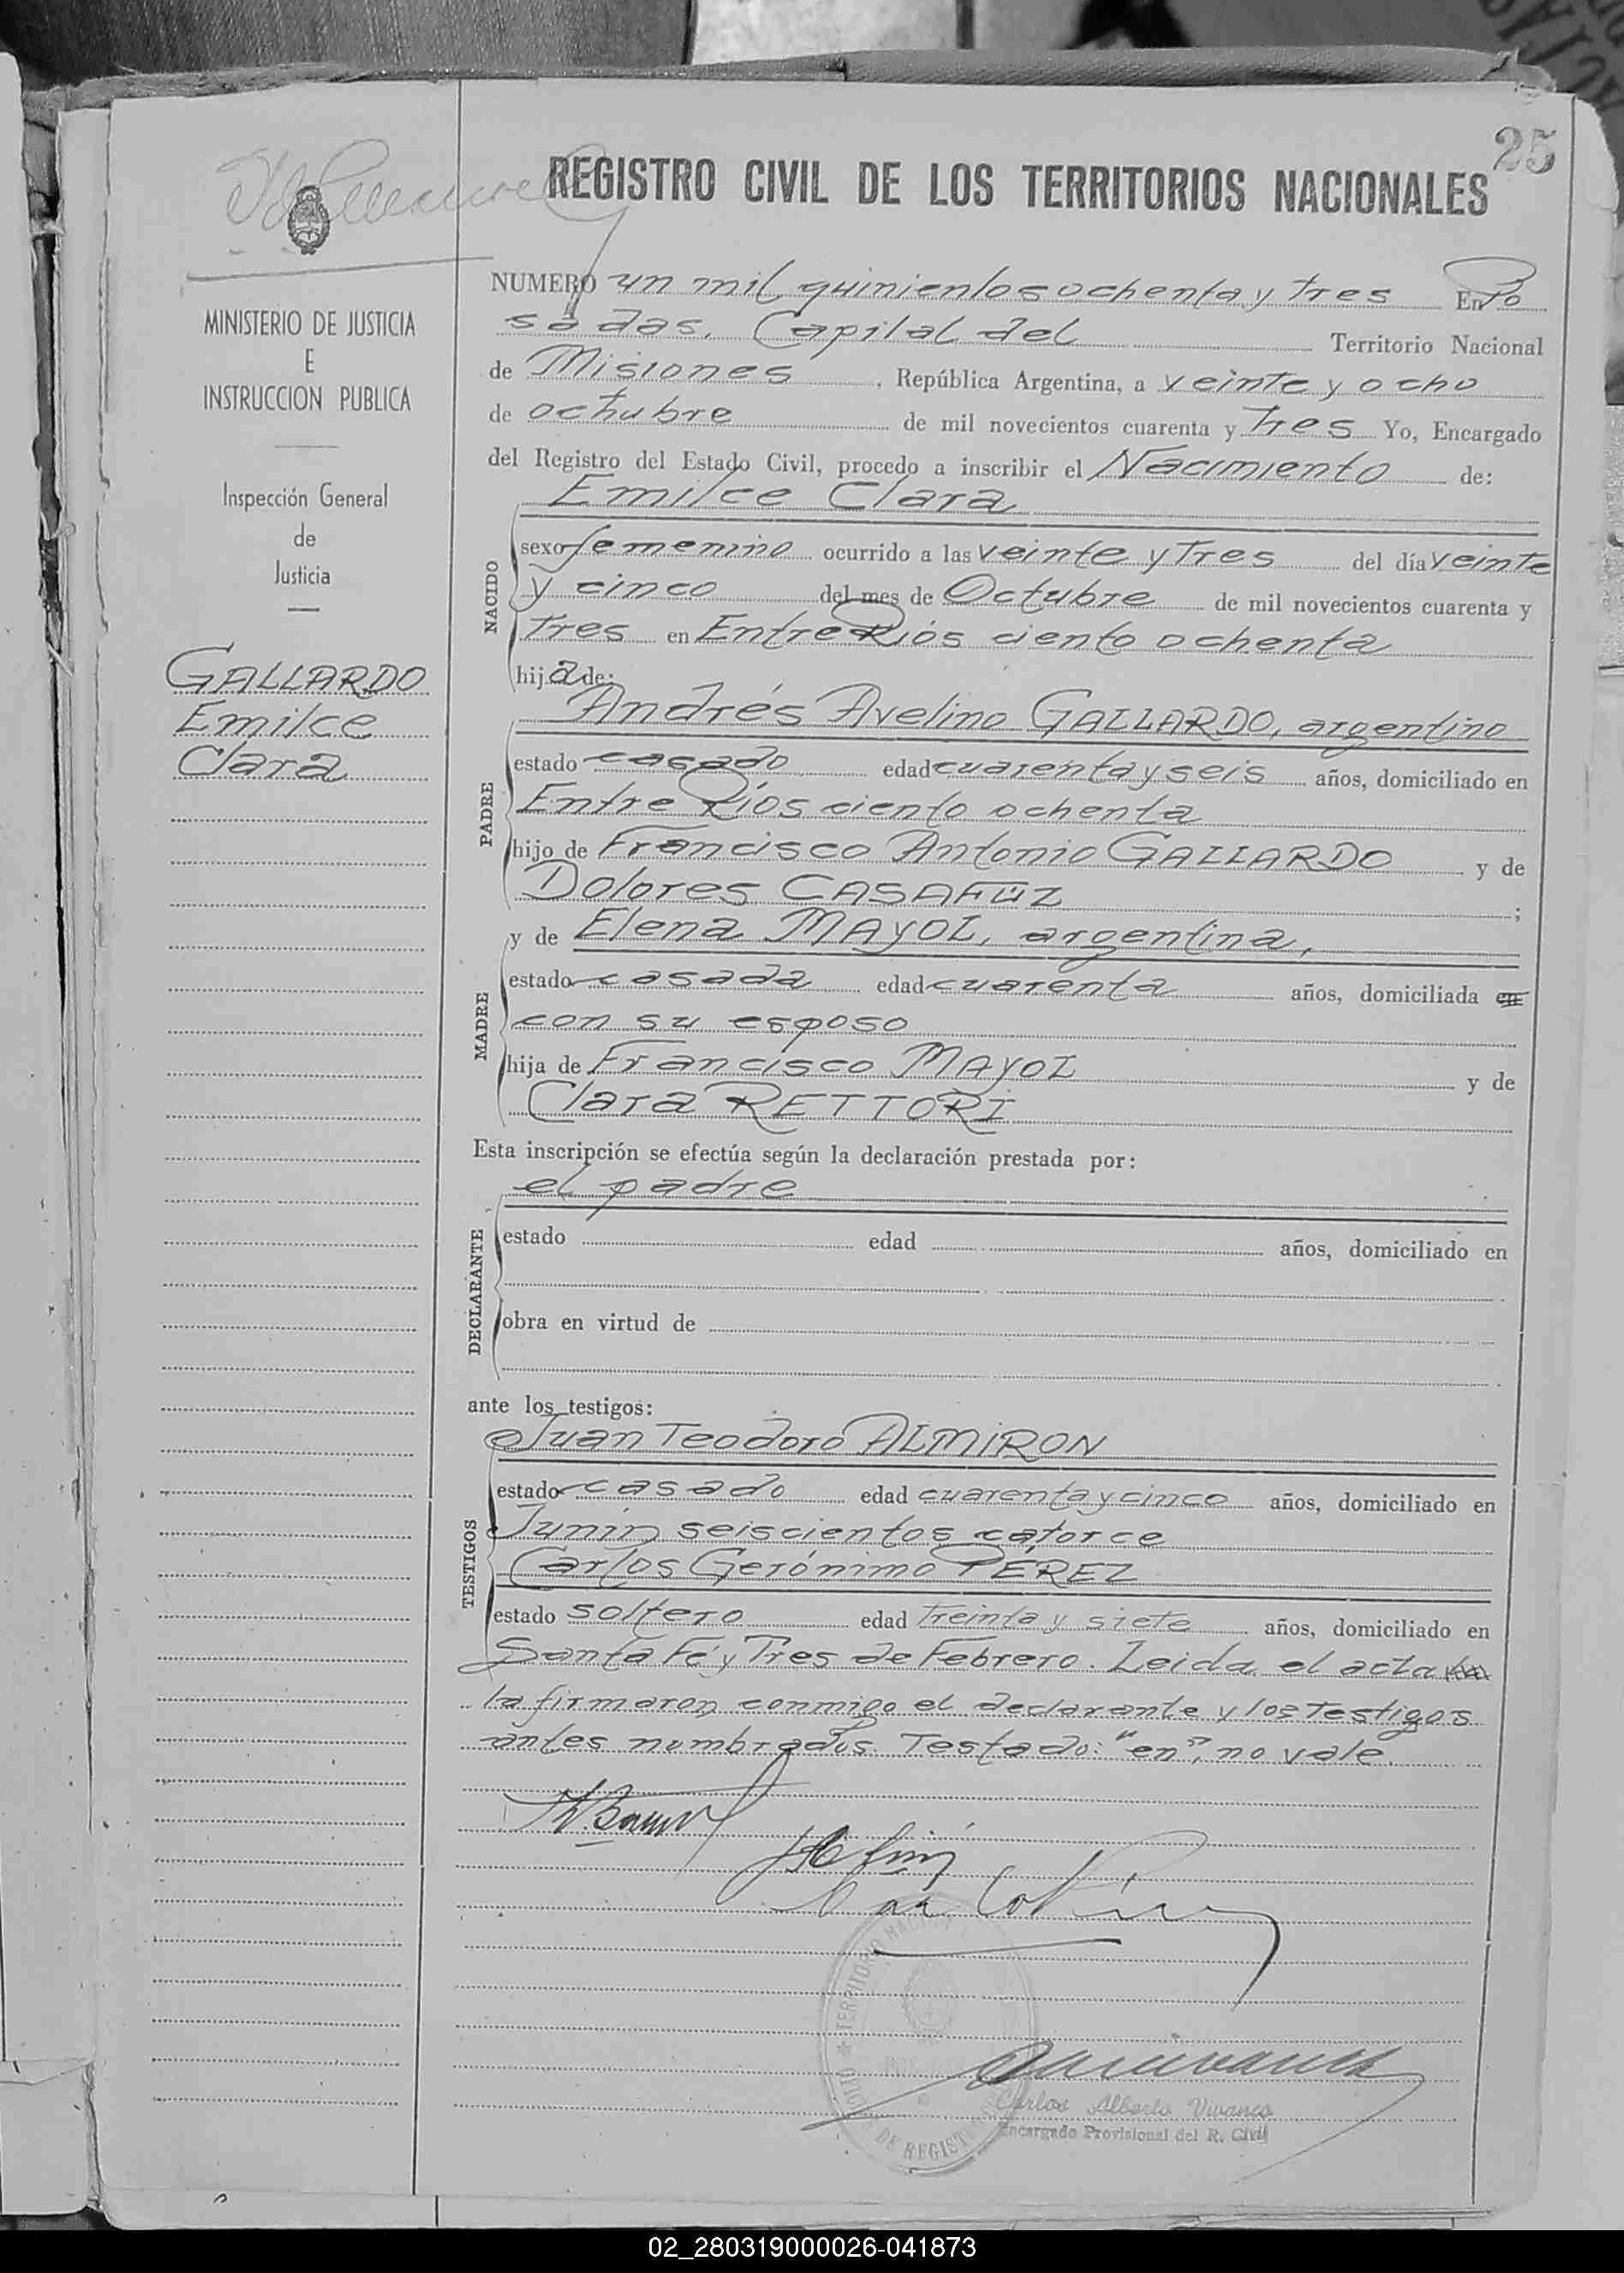 25
REGISTRO CIVIL DE LOS TERRITORIOS NACIONALES
MINISTERIO DE JUSTICIA
E
INSTRUCCION PUBLICA
Inspección General
de
Justicia
GALLARDO
Emilce
Clara
NUMERO un mil quinientos ochenta y tres En Po
sadas, Capital del Territorio Nacional
de Misiones, República Argentina, a veinte y ocho
de octubre de mil novecientos cuarenta y tres Yo, Encargado
del Registro del Estado Civil, procedo a inscribir el Nacimiento de:
Emilce Clara
NACIDO
sexo femenino ocurrido a las veinte y tres del día veinte
y cinco del mes de Octubre de mil novecientos cuarenta y
tres en Entre Ríos ciento ochenta
hija de:
PADRE
Andrés Avelino GALLARDO, argentino
estado casado edad cuarenta y seis años, domiciliado en
Entre Ríos ciento ochenta
hijo de Francisco Antonio GALLARDO y de
Dolores CASAFÚZ ;
MADRE
y de Elena MAYOL, argentina,
estado casada edad cuarenta años, domiciliada en
con su esposo
hija de Francisco MAYOL y de
Clara RETTORI
Esta inscripción se efectúa según la declaración prestada por:
el padre
DECLARANTE
estado edad años, domiciliado en
obra en virtud de
ante los testigos:
TESTIGOS
Juan Teodoro ALMIRON
estado casado edad cuarenta y cinco años, domiciliado en
Junín seiscientos catorce
Carlos Gerónimo PÉREZ
estado soltero edad treinta y siete años, domiciliado en
Santa Fé y Tres de Febrero. Leida el acta
la firmaron conmigo el declarante y los testigos
antes nombrados. Testado: "en", no vale.
TERRITORIO NACI
DE REGIST
Carlos Alberto Vivanco
Encargado Provisional del R. Civil
02_280319000026-041873